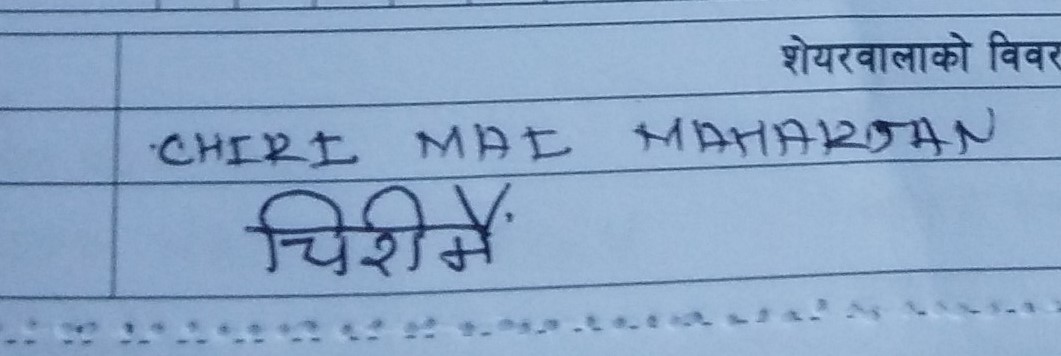 शेयरवालाको विवर
CHIRI MAI MAHARJAN
चिरीमै